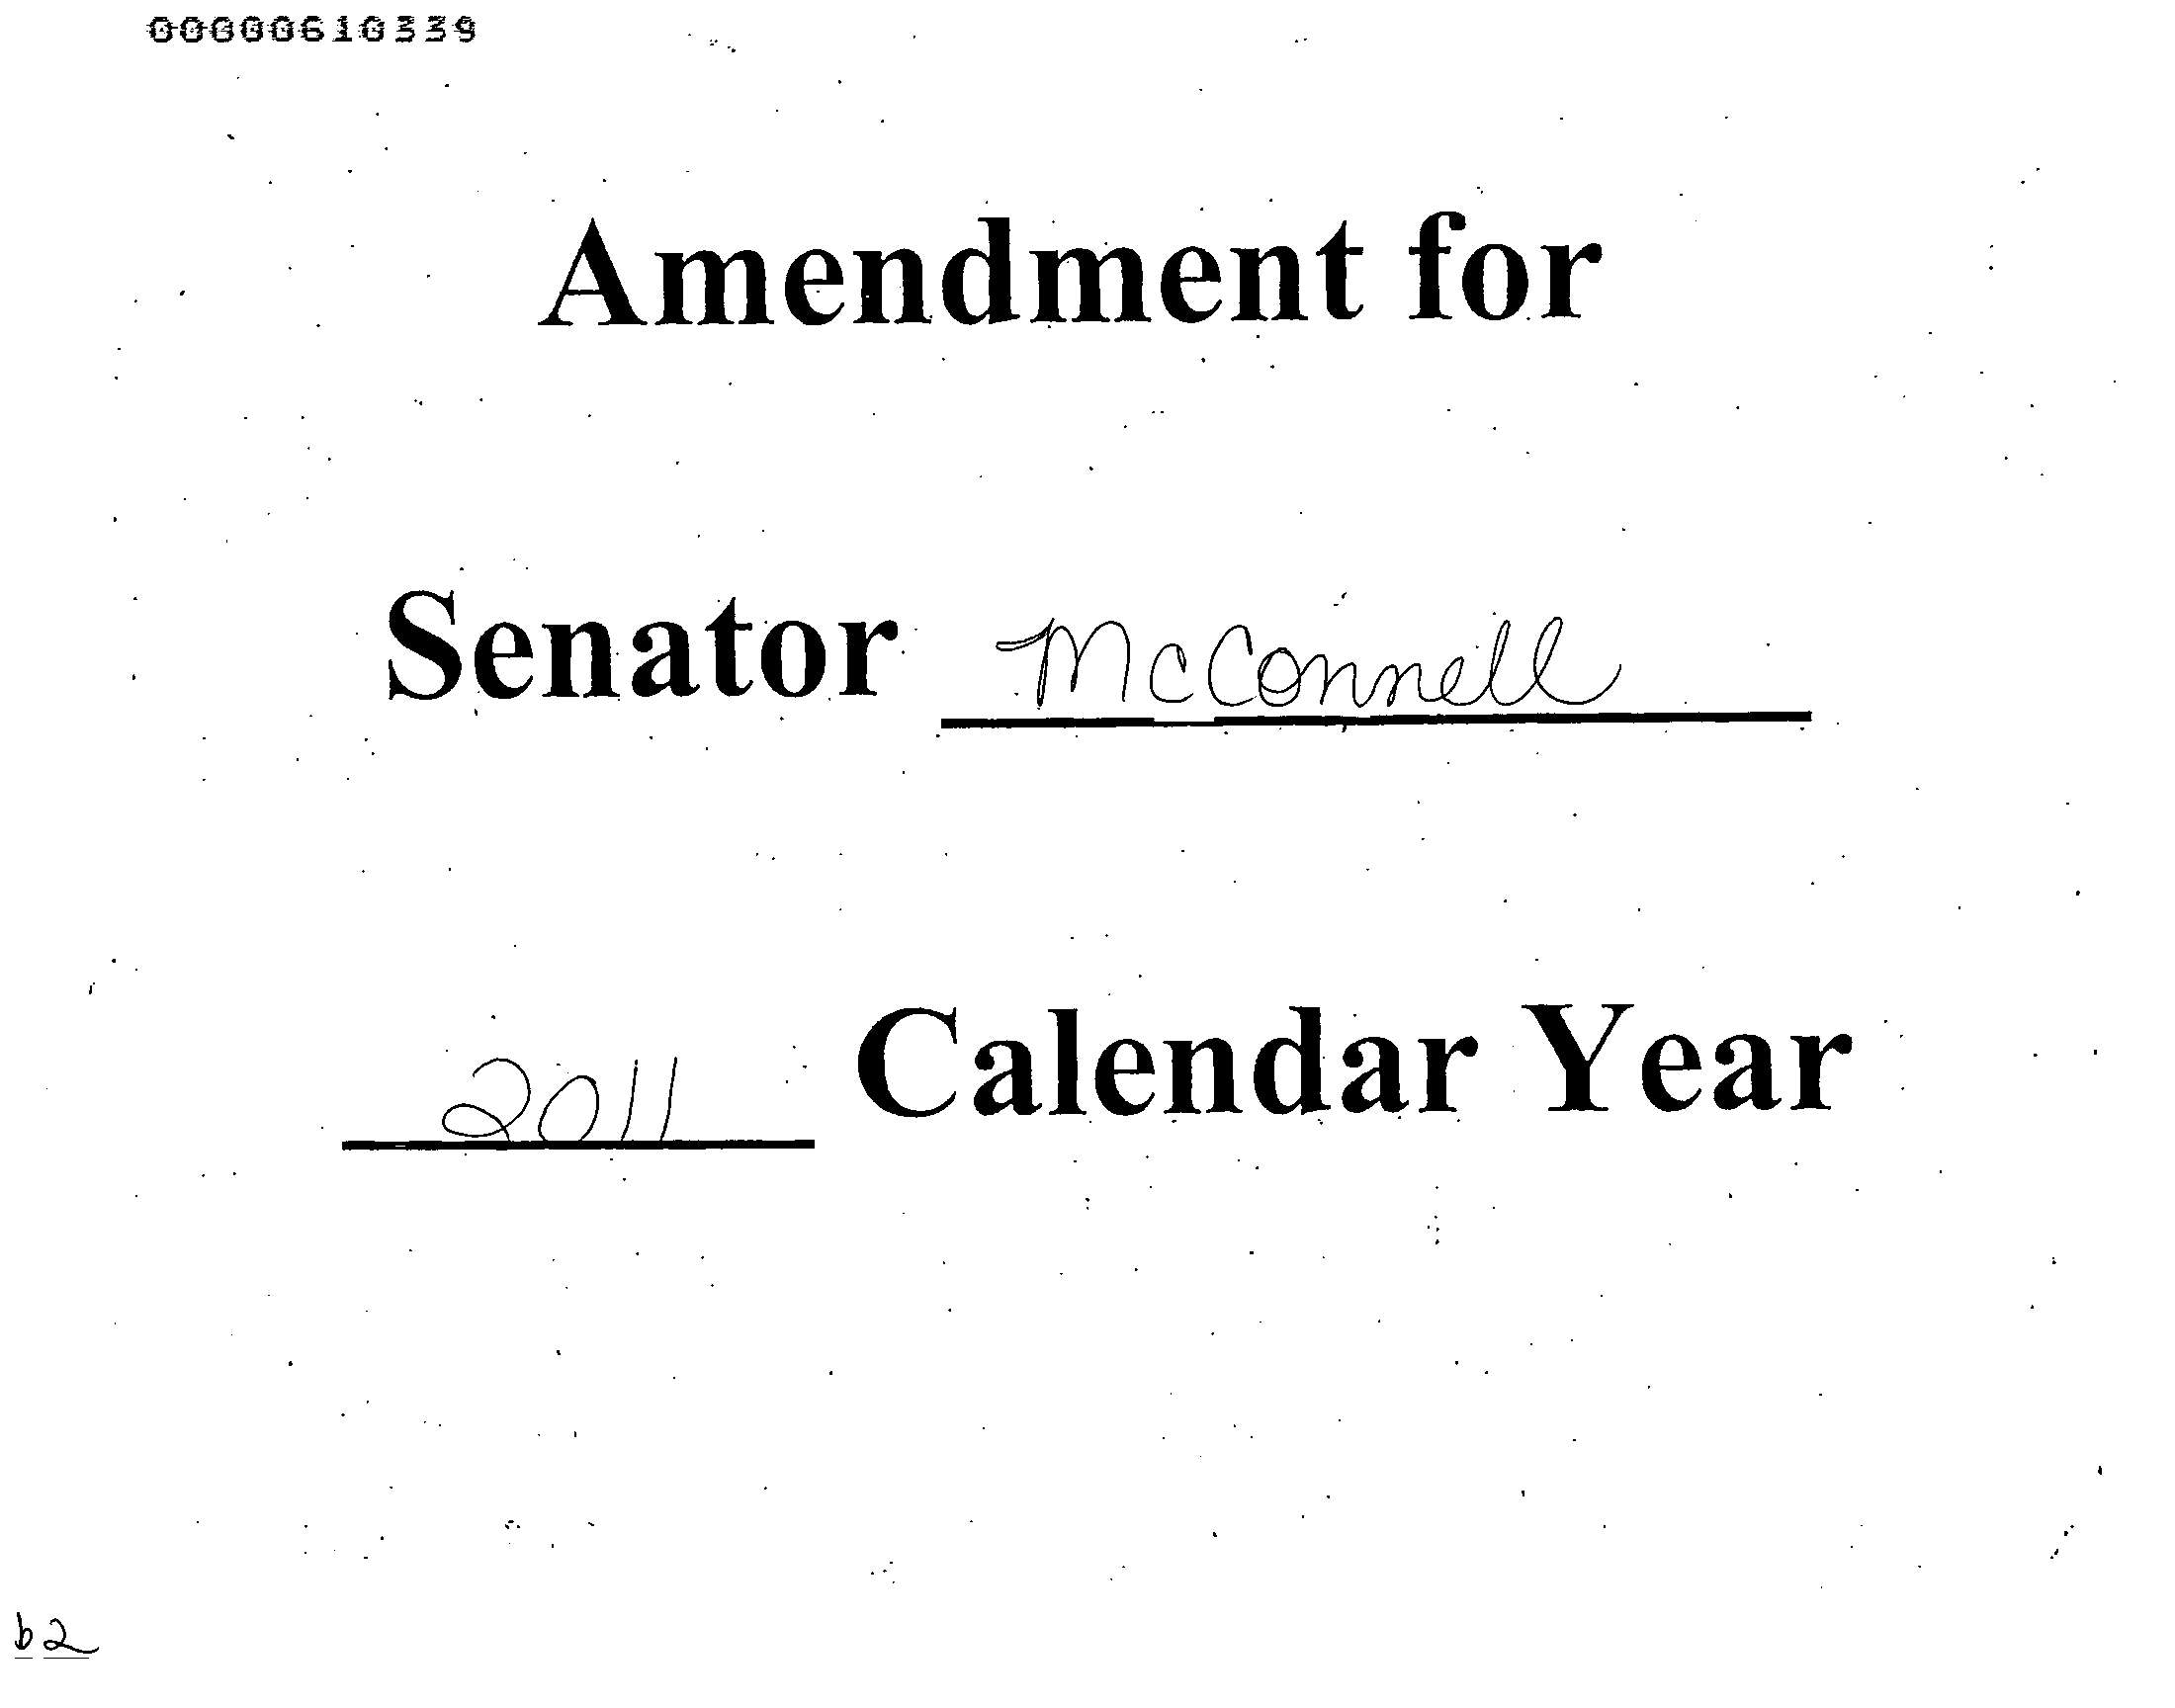 00000610339
Amendment for
Senator McConnell
2011 Calendar Year
b2